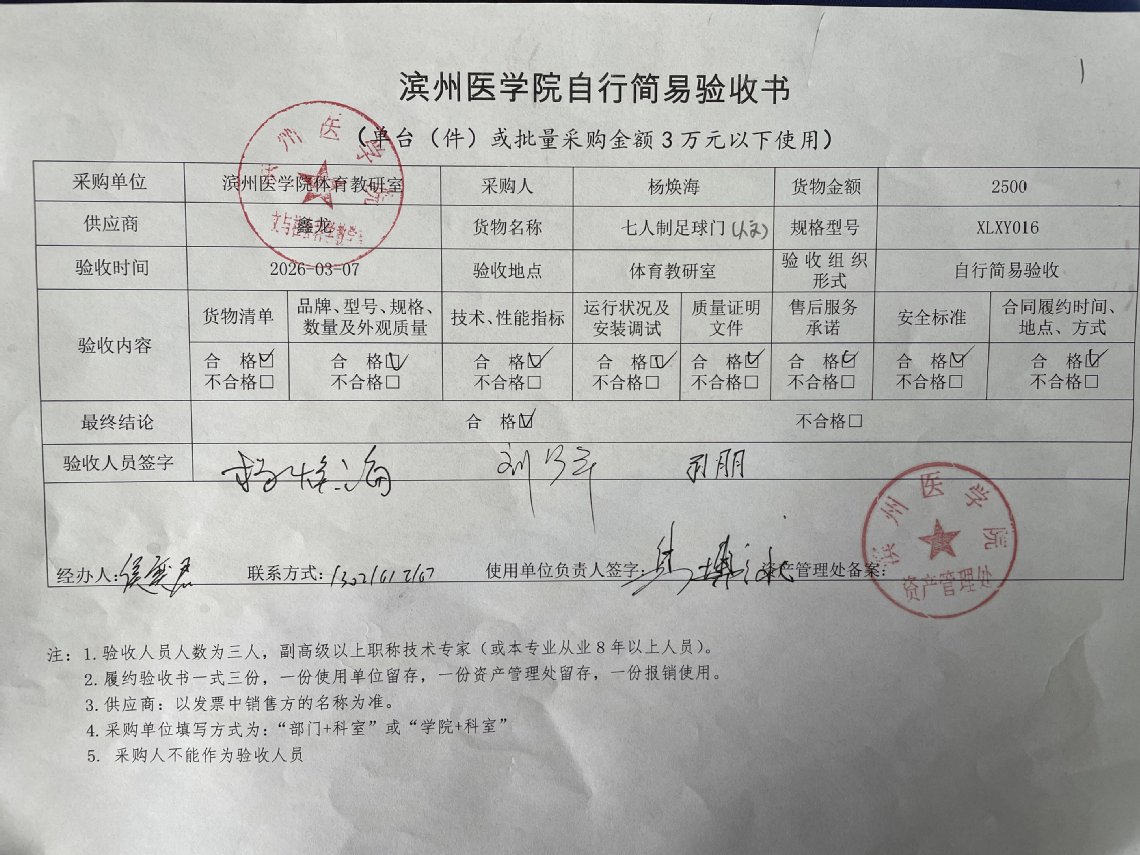 滨州医学院自行简易验收书
（单台（件）或批量采购金额3万元以下使用）
采购单位 滨州医学院体育教研室 采购人 杨焕海 货物金额 2500
供应商 鑫龙 货物名称 七人制足球门 规格型号 XLXY016
验收时间 2026-03-07 验收地点 体育教研室 验收组织形式 自行简易验收
验收内容 货物清单 品牌、型号、规格、数量及外观质量 技术、性能指标 运行状况及安装调试 质量证明文件 售后服务承诺 安全标准 合同履约时间、地点、方式
合 格☑ 合 格☑ 合 格☑ 合 格☑ 合 格☑ 合 格☑ 合 格☑ 合 格☑
不合格□ 不合格□ 不合格□ 不合格□ 不合格□ 不合格□ 不合格□ 不合格□
最终结论 合 格☑ 不合格□
验收人员签字 杨焕海
经办人: 联系方式: 使用单位负责人签字: 资产管理处备案:
滨州医学院
资产管理处
注：1.验收人员人数为三人，副高级以上职称技术专家（或本专业从业8年以上人员）。
2.履约验收书一式三份，一份使用单位留存，一份资产管理处留存，一份报销使用。
3.供应商：以发票中销售方的名称为准。
4.采购单位填写方式为：“部门+科室”或“学院+科室”
5. 采购人不能作为验收人员